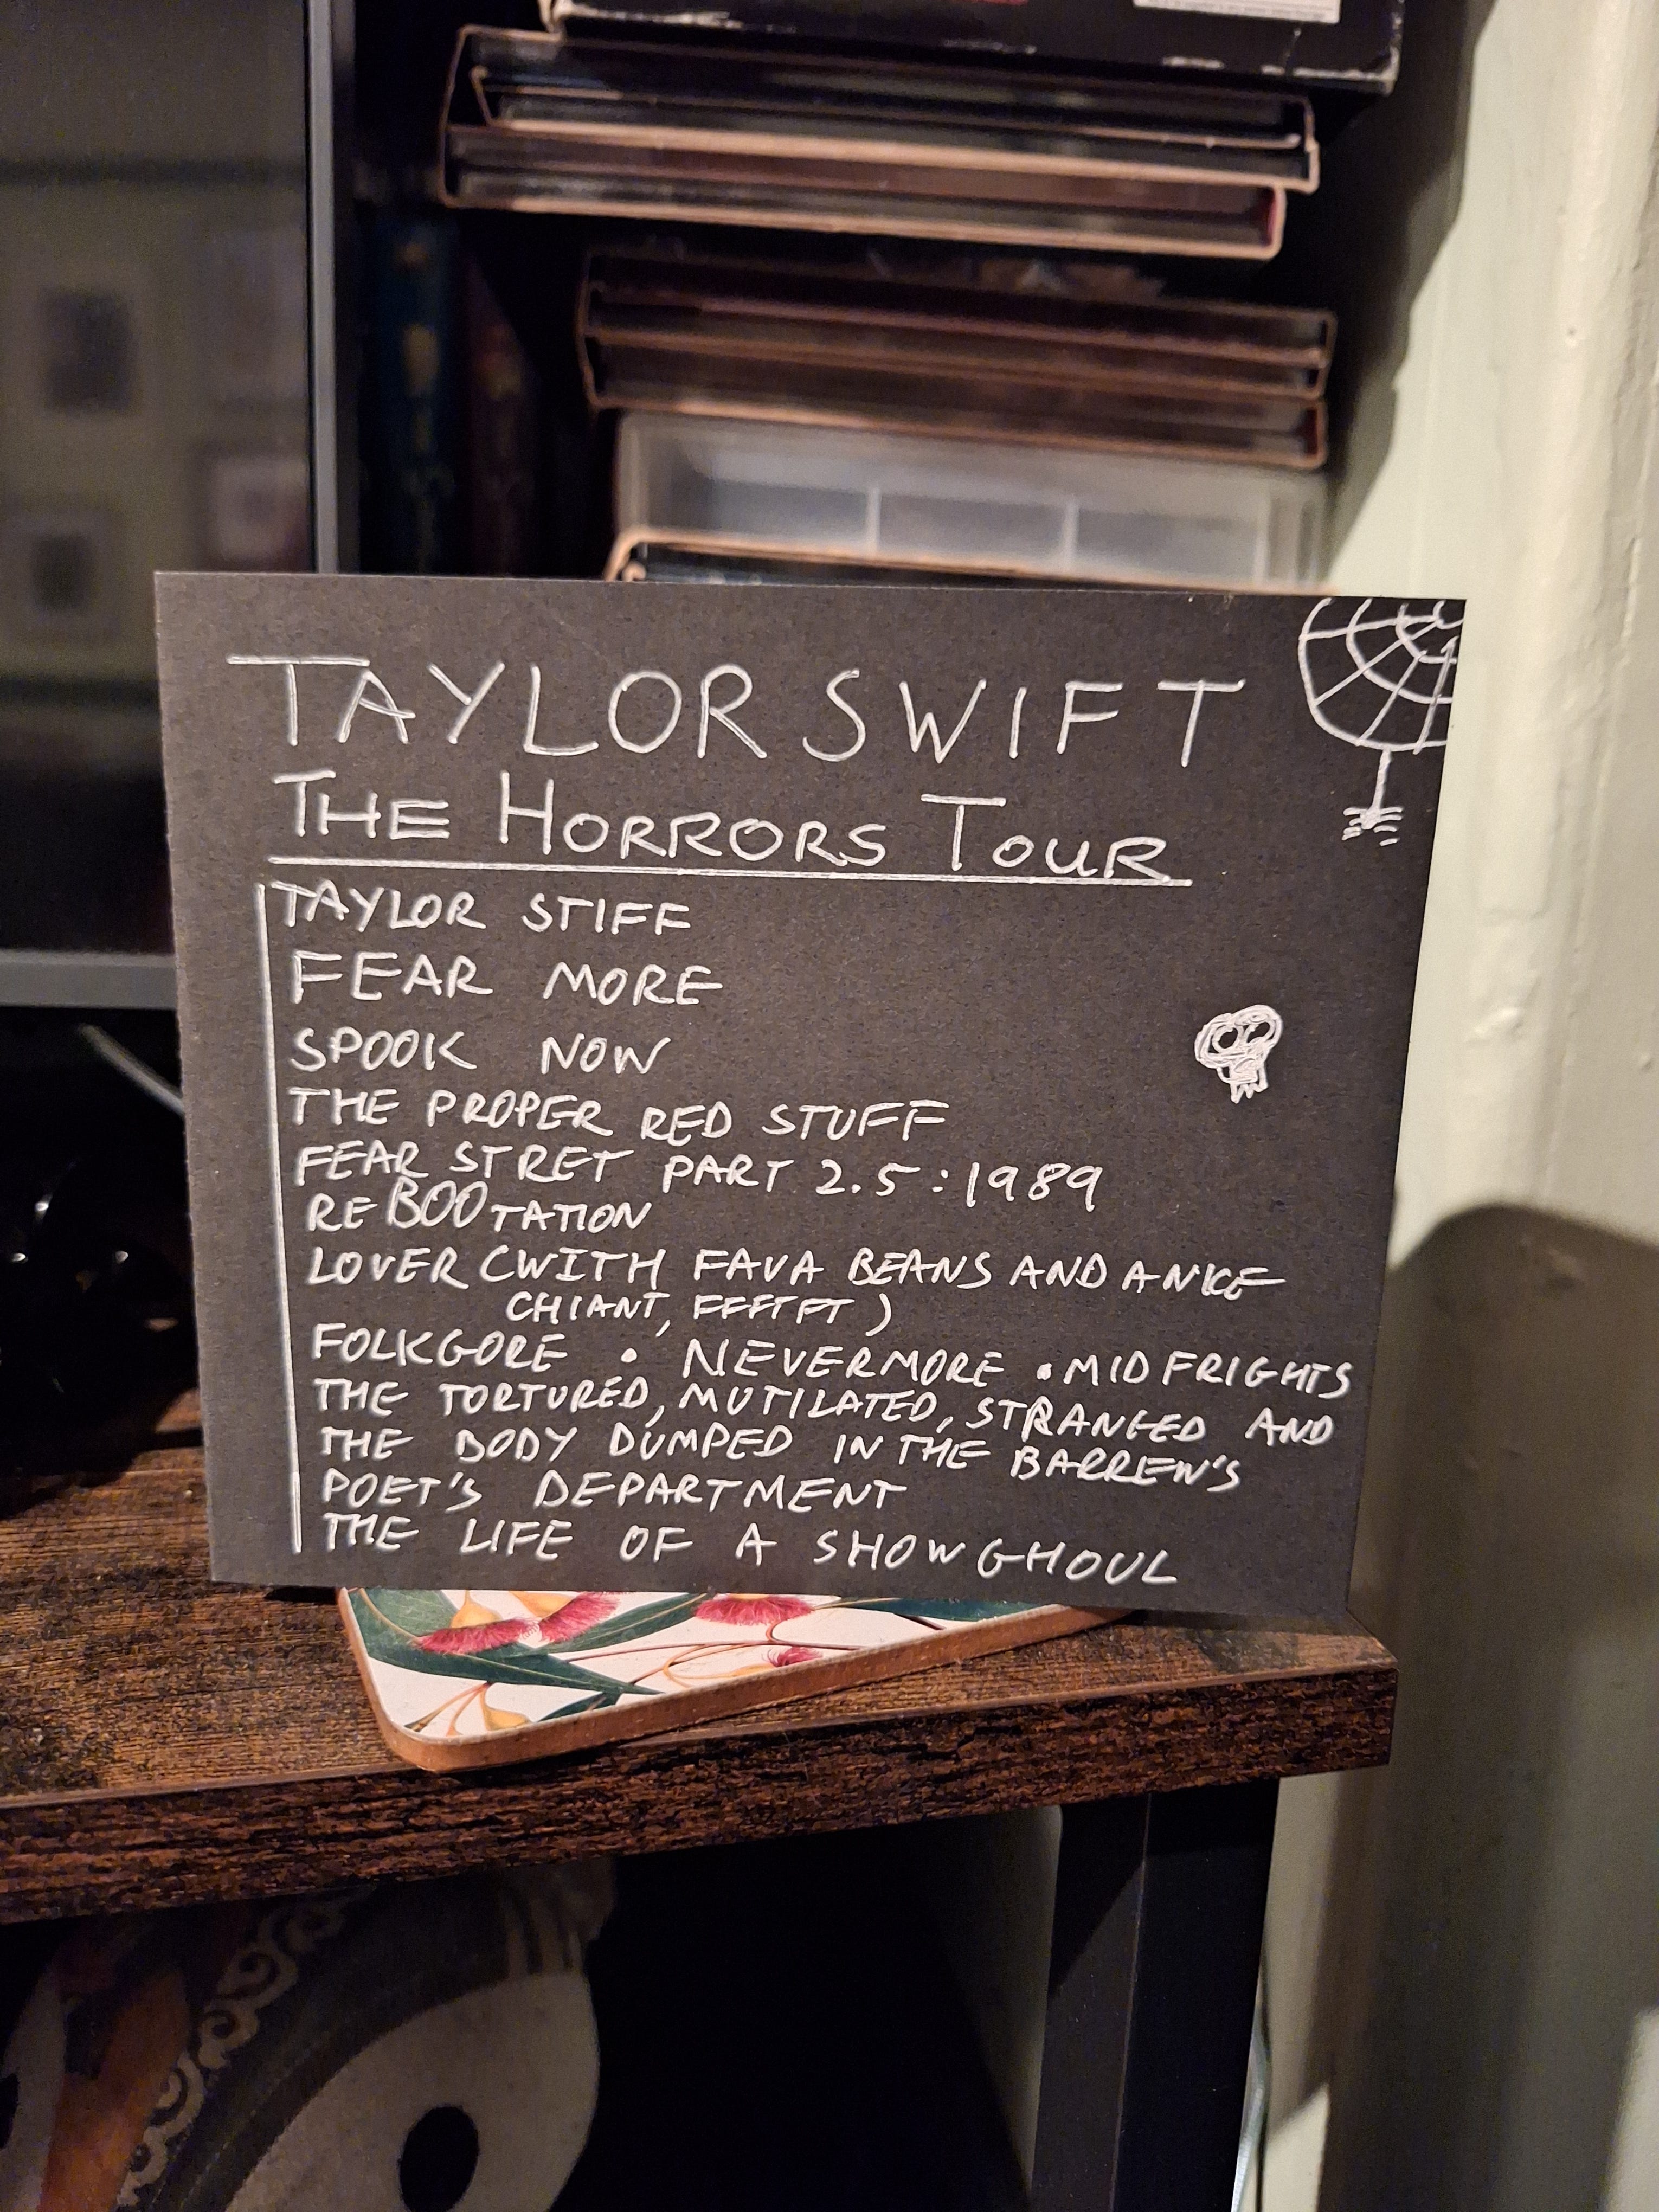 TAYLOR SWIFT
THE HORRORS TOUR
TAYLOR STIFF
FEAR MORE
SPOOK NOW
THE PROPER RED STUFF
FEAR STRET PART 2.5:1989
REBOOTATION
LOVER (WITH FAVA BEANS AND A NICE
CHIANT, FFFTFT)
FOLKGORE • NEVERMORE • MIDFRIGHTS
THE TORTURED, MUTILATED, STRANGED AND
THE BODY DUMPED IN THE BARREN'S
POET'S DEPARTMENT
THE LIFE OF A SHOWGHOUL